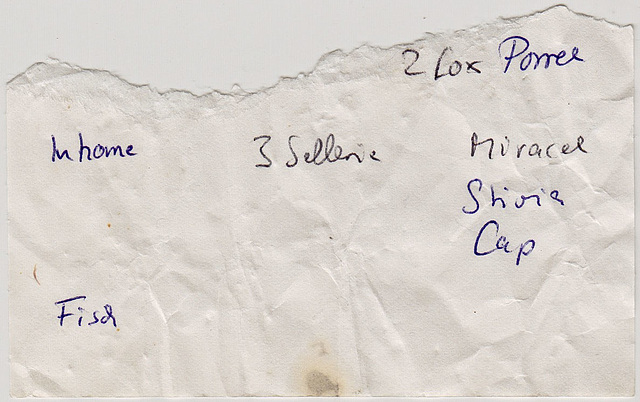 2 Cox Porree
Inhome 3 Sellerie Miracel
Stivia
Cap
Fisch